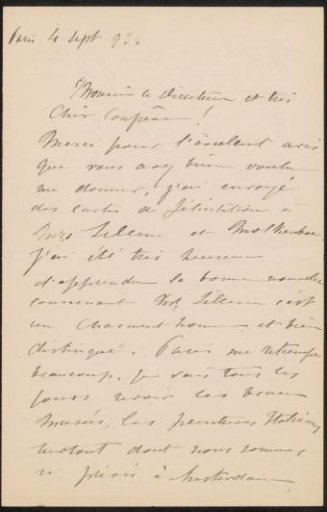 Paris 4 Sept 93.
Monsieur le Directeur et très
Cher Confrère !
Merci pour l'excellent avis
que vous avez bien voulu
me donner, j'ai envoyé
des cartes de félicitation à
Mrs Lillem et Molkenboer
j'ai été très heureux
d'apprendre la bonne nouvelle
concernant Mr. Lillem c'est
un charmant homme et bien
distingué. Paris me retrempe
beaucoup, je vais tous les
jours revoir les beaux
Musées, les peintures Italiennes
surtout dont nous sommes
si privés à Amsterdam